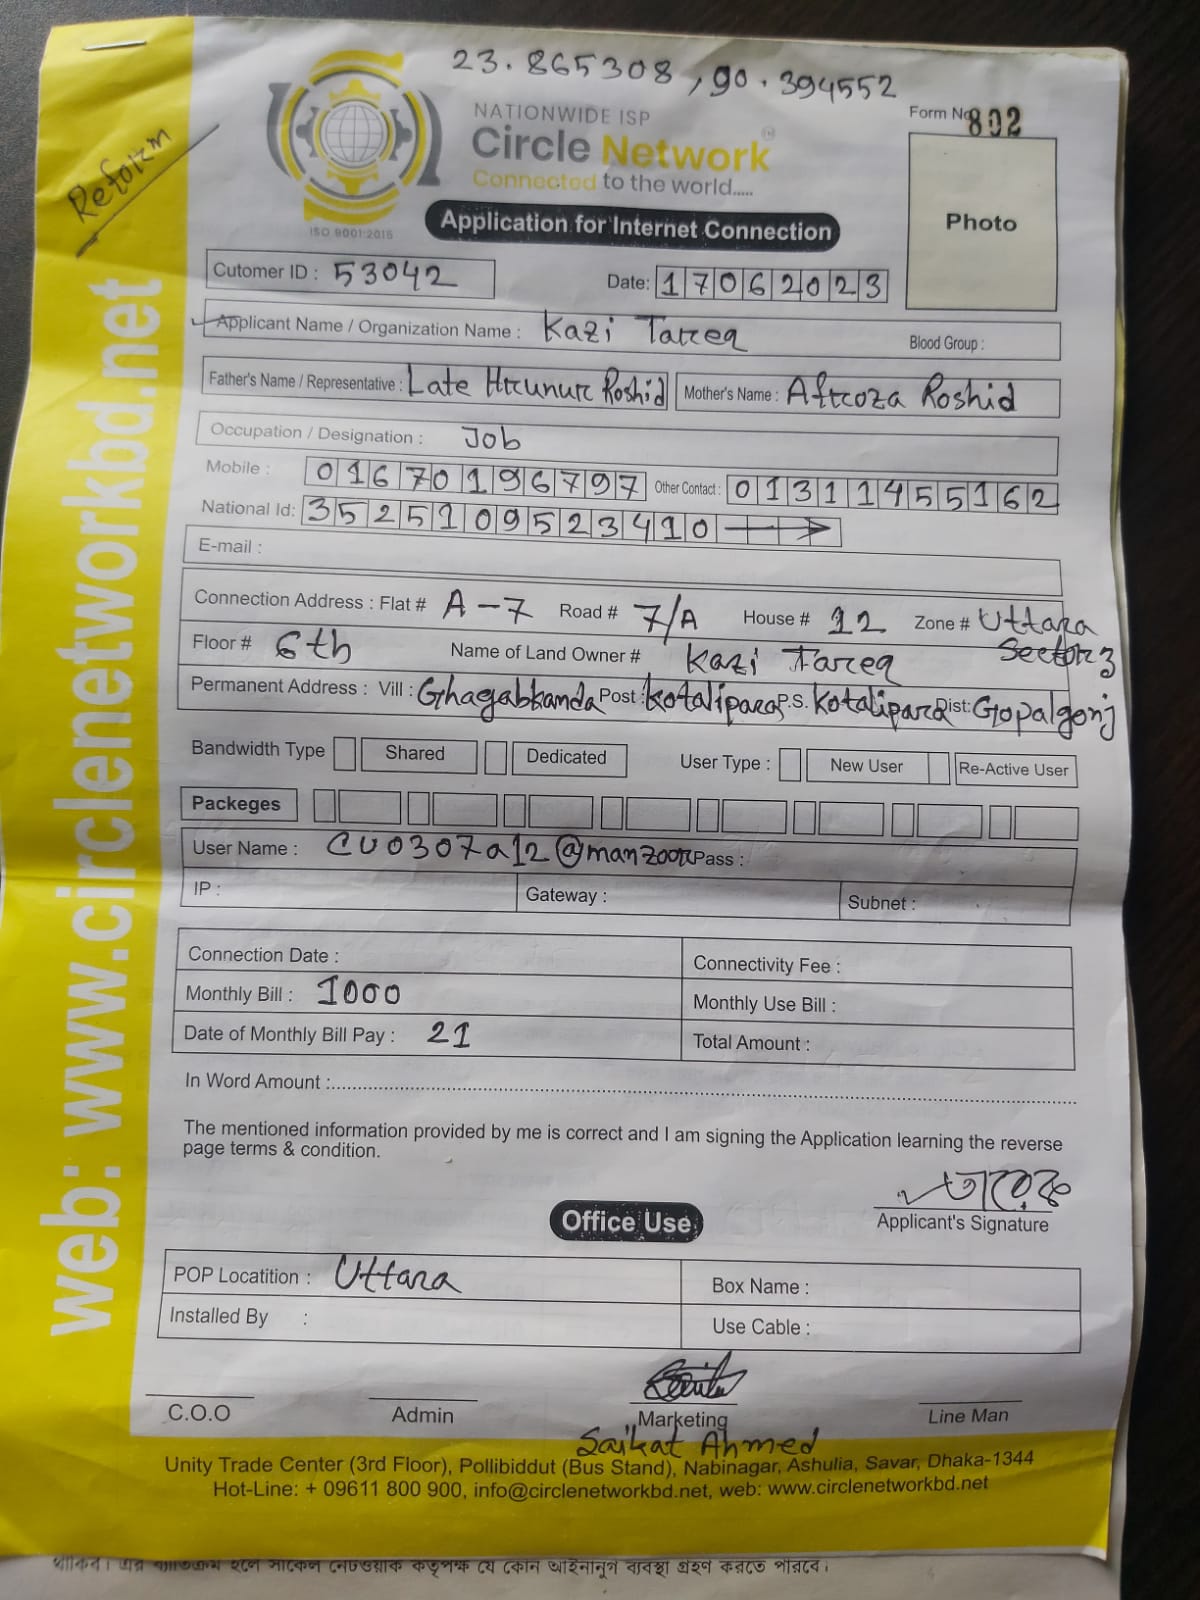 23.865308, 90.394552
Reform
NATIONWIDE ISP
Circle Network
Connected to the world.....
ISO 9001:2015
Application for Internet Connection
Form No 802
Photo
Cutomer ID : 53042
Date: 17062023
Applicant Name / Organization Name : Kazi Tareq
Blood Group :
Father's Name / Representative : Late Hrunur Roshid
Mother's Name : Afroza Roshid
Occupation / Designation : Job
Mobile : 01670196797
Other Contact : 01311455162
National Id: 3525109523410
E-mail :
Connection Address : Flat # A-7 Road # 7/A House # 12 Zone # Uttara Sector 3
Floor # 6th Name of Land Owner # Kazi Tareq
Permanent Address : Vill : Ghagabkanda Post : Kotalipara P.S. Kotalipara Dist: Gopalgonj
Bandwidth Type Shared Dedicated User Type : New User Re-Active User
Packeges
User Name : CU0307a12@manzoor Pass :
IP : Gateway : Subnet :
Connection Date : Connectivity Fee :
Monthly Bill : 1000 Monthly Use Bill :
Date of Monthly Bill Pay : 21 Total Amount :
In Word Amount :
The mentioned information provided by me is correct and I am signing the Application learning the reverse
page terms & condition.
তারেক
Applicant's Signature
Office Use
POP Locatition : Uttara Box Name :
Installed By : Use Cable :
C.O.O Admin Marketing Line Man
Saikat Ahmed
Unity Trade Center (3rd Floor), Pollibiddut (Bus Stand), Nabinagar, Ashulia, Savar, Dhaka-1344
Hot-Line: + 09611 800 900, info@circlenetworkbd.net, web: www.circlenetworkbd.net
web: www.circlenetworkbd.net
থাকিব। এর ব্যাতিক্রম হলে সার্কেল নেটওয়ার্ক কতৃপক্ষ যে কোন আইনানুগ ব্যবস্থা গ্রহণ করতে পারবে।